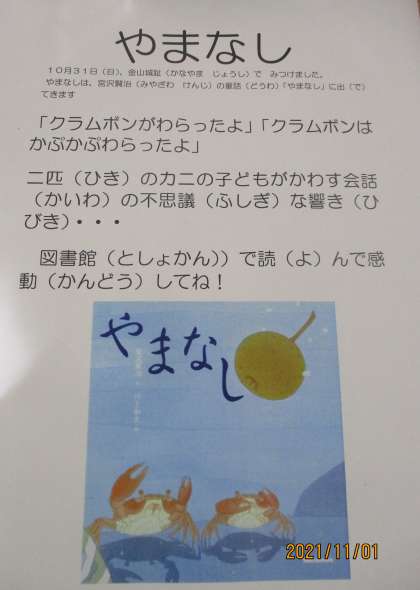 やまなし
１０月３１日（日）、金山城趾（かなやま　じょうし）で　みつけました。
やまなしは、宮沢賢治（みやざわ　けんじ）の童話（どうわ）「やまなし」に出（で）
てきます
「クラムボンがわらったよ」「クラムボンは
かぷかぷわらったよ」
二匹（ひき）のカニの子どもがかわす会話
（かいわ）の不思議（ふしぎ）な響き（ひ
びき）・・・
図書館（としょかん））で読（よ）んで感
動（かんどう）してね！
やまなし
2021/11/01